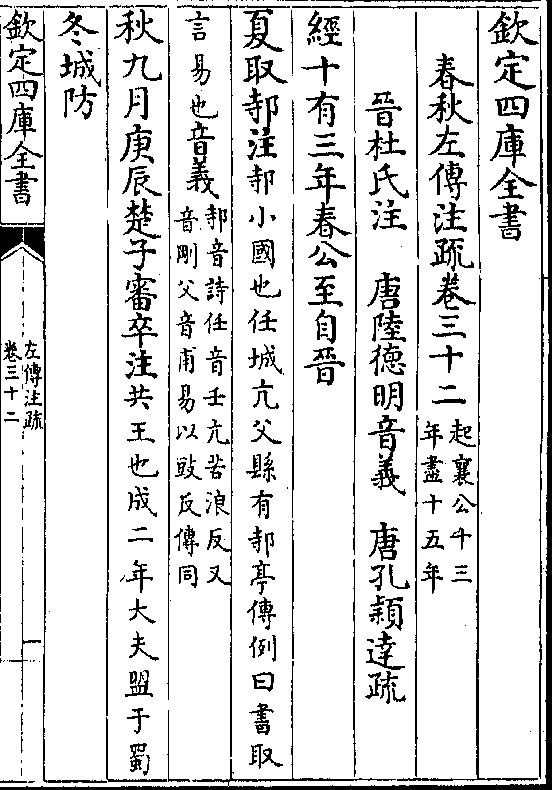 欽定四庫全書
春秋左傳注疏卷三十二
起襄公十三
年盡十五年
晉杜氏注 唐陸德明音義 唐孔穎達疏
經十有三年春公至自晉
夏取邿注邿小國也任城亢父縣有邿亭傳例曰書取
言易也音義
邿音詩任音壬亢苦浪反又
音剛父音甫易以豉反傳同
秋九月庚辰楚子審卒注共王也成二年大夫盟于蜀
冬城防
欽定四庫全書
左傳注疏
卷三十二
一